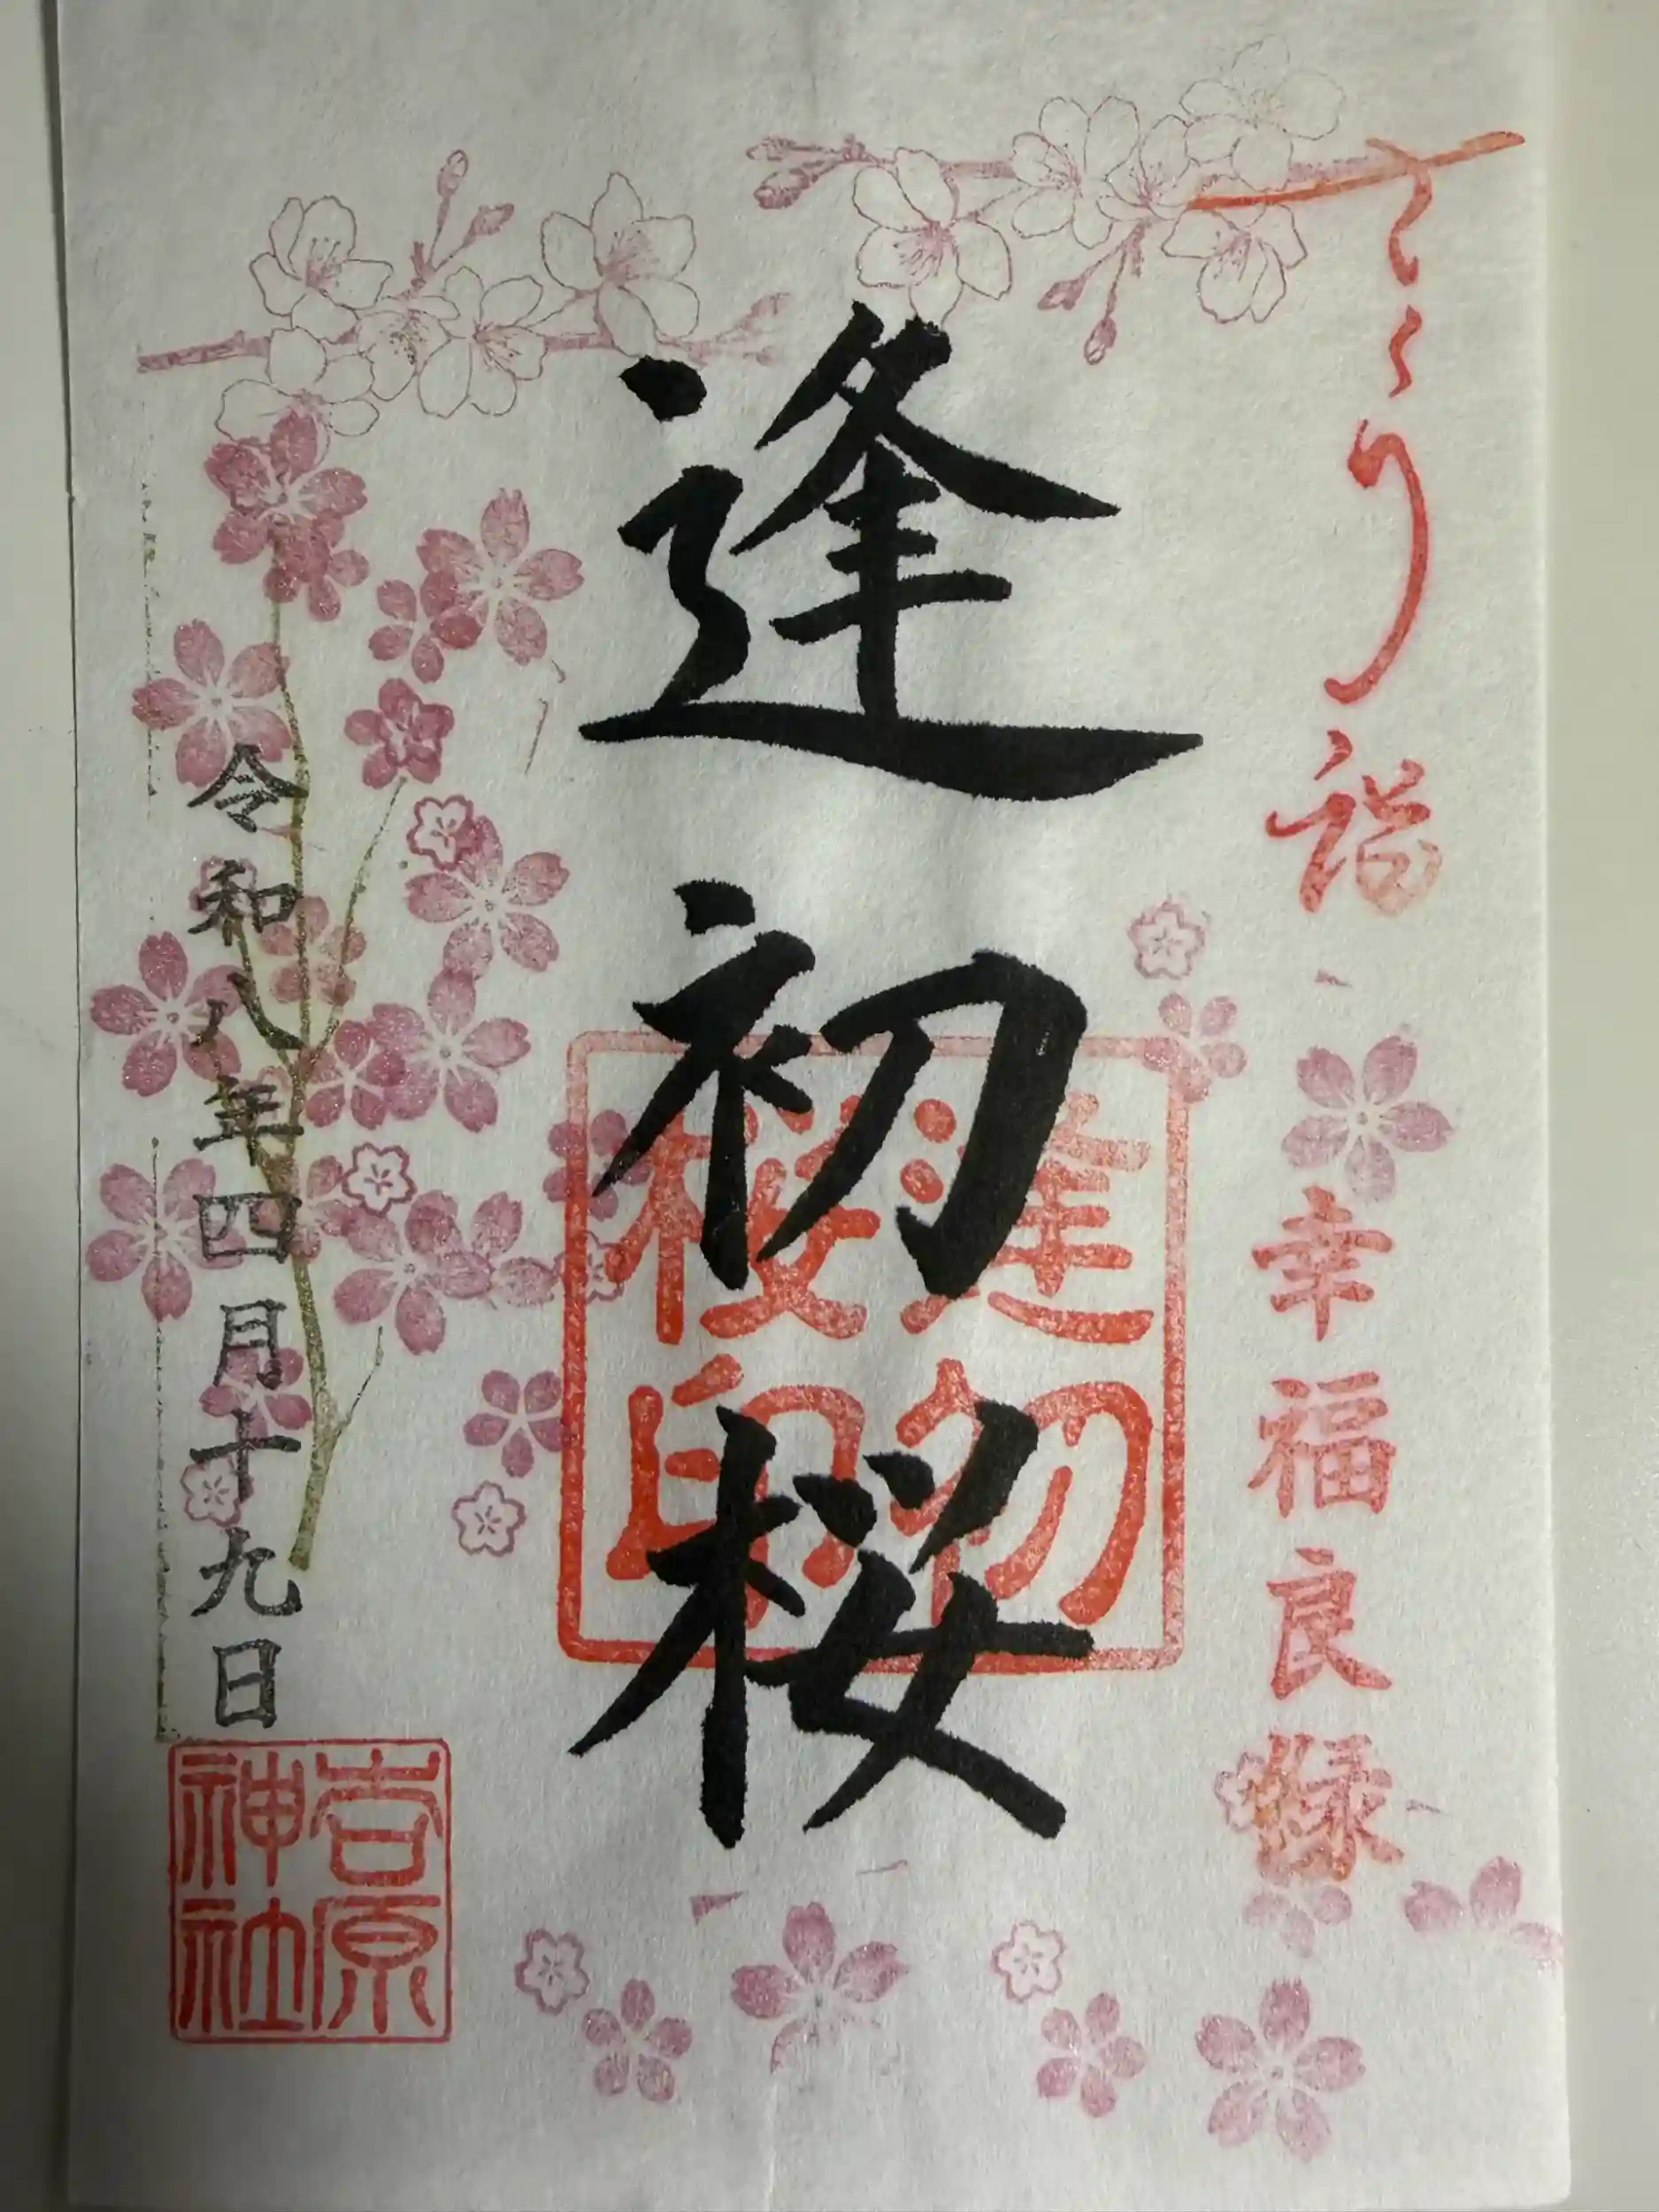 さくら詣
幸福良縁
逢初桜
逢初
桜印
令和八年四月十九日
吉原
神社